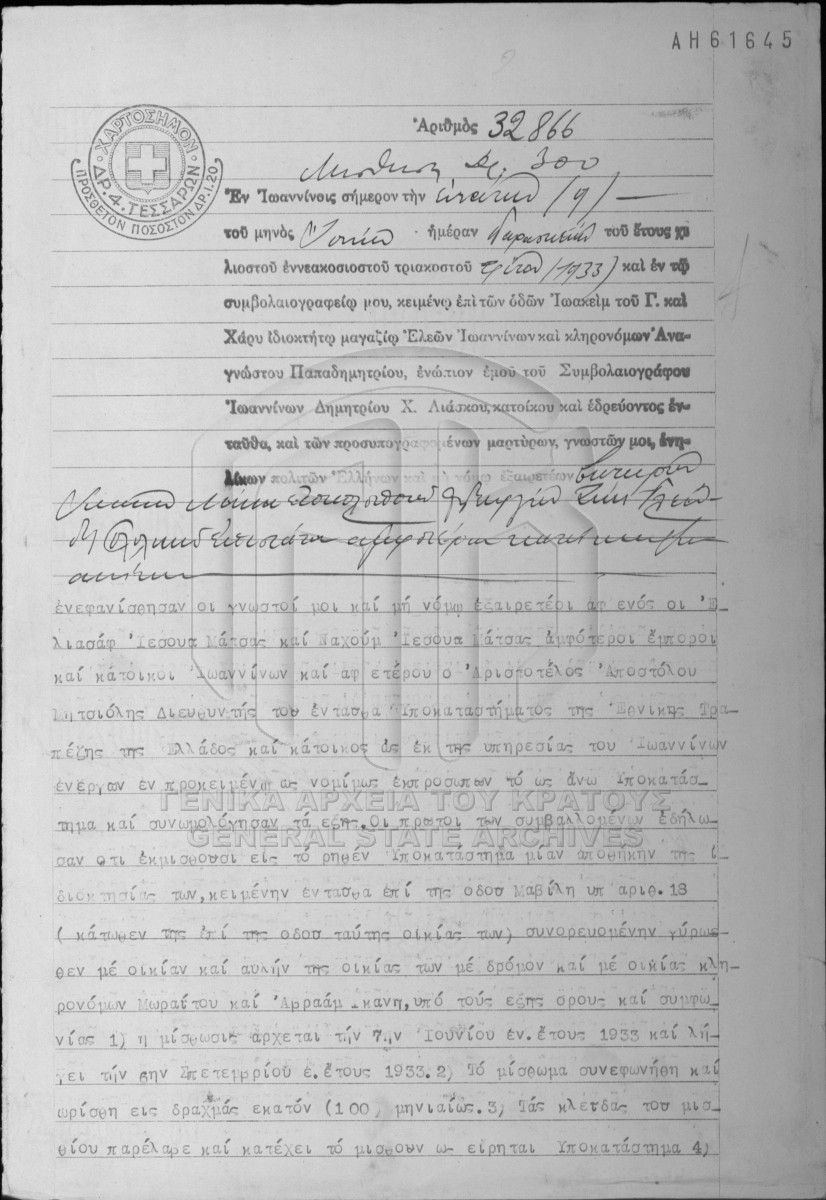 ΑΗ61645
Ἀριθμὸς 32866
ΧΑΡΤΟΣΗΜΟΝ
ΔΡ. 4. ΤΕΣΣΑΡΩΝ
ΠΡΟΣΘΕΤΟΝ ΠΟΣΟΣΤΟΝ ΔΡ. 1.20
Μίσθωσις Δρ. 300
Ἐν Ἰωαννίνοις σήμερον τὴν ἐνάτην /9/ —
τοῦ μηνὸς Ἰουνίου ἡμέραν Παρασκευὴν τοῦ ἔτους χι
λιοστοῦ ἐννεακοσιοστοῦ τριακοστοῦ τρίτου /1933/ καὶ ἐν τῷ
συμβολαιογραφείῳ μου, κειμένῳ ἐπὶ τῶν ὁδῶν Ἰωακεὶμ τοῦ Γ. καὶ
Χάρυ ἰδιοκτήτῳ μαγαζίῳ Ἐλεῶν Ἰωαννίνων καὶ κληρονόμων Ἀνα-
γνώστου Παπαδημητρίου, ἐνώπιον ἐμοῦ τοῦ Συμβολαιογράφου
Ἰωαννίνων Δημητρίου Χ. Λιάσκου, κατοίκου καὶ ἑδρεύοντος ἐν-
ταῦθα, καὶ τῶν προσυπογραφομένων μαρτύρων, γνωστῶν μοι, ἐνη-
λίκων πολιτῶν Ἑλλήνων καὶ μὴ νόμῳ ἐξαιρετέων
ἐνεφανίσθησαν οι γνωστοί μοι καί μή νόμῳ ἐξαιρετέρι ἀφ ενός οι Ἐ-
λιασάφ Ἰεσουα Μάτσας καί Ναχούμ Ἰεσουα Μάτσας ἀμφότεροι ἔμποροι
καί κάτοικοι Ἰωαννίνων καί αφ ετέρου ο Ἀριστοτέλος Ἀποστόλου
Διευθυντής του ἐνταῦθα Ὑποκαταστήματος της Ἐθνικης Τρα-
πέζης της Ἑλλάδος καί κάτοικος ὡς ἐκ της υπηρεσίας του Ἰωαννίνων
ἐνεργων ἐν προκειμένῳ ως νομίμως ἐκπροσωπων τό ως ἄνω Υποκατάσ-
τημα καί συνωμολόγησαν τά εξης. Οι πρωτοι των συμβαλλομένων ἐδήλω-
σαν οτι ἐκμισθουσι εἰς τό ρηθέν Υποκατάστημα μίαν αποθήκην της ι
διοκτησίας των, κειμένην ἐνταυθα ἐπί της οδου Μαβίλη υπ αριθ. 18
( κάτωθεν της ἐπί της οδου ταύτης οικίας των) συνορευομένην γύρω-
θεν μέ οικίαν καί αυλήν της οικίας των μέ δρόμον καί μέ οικίας κλη-
ρονόμων Μωραίτου καί Ἀβραάμ Κανη, υπό τους εξης ορους καί συμφω-
νίας 1) η μίσθωσις ἄρχεται τήν 7ην Ἰουνίου ἐν. ἔτους 1933 καί λή-
γει τήν Σπετεμβρίου ἐ. ἔτους 1933. 2) Τό μίσθωμα συνεφωνήθη καί
ωρίσθη εις δραχμάς εκατόν (100) μηνιαίως. 3) Τάς κλεῖδας του μισ-
θίου παρέλαβε καί κατέχει τό μισθουν ως εἴρηται Υποκατάστημα 4)
ΓΕΝΙΚΑ ΑΡΧΕΙΑ ΤΟΥ ΚΡΑΤΟΥΣ
GENERAL STATE ARCHIVES